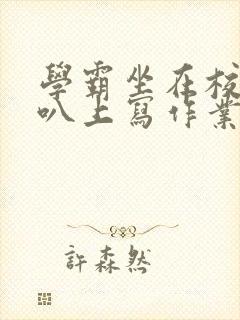 學霸坐在校
叭上寫作業
許森然